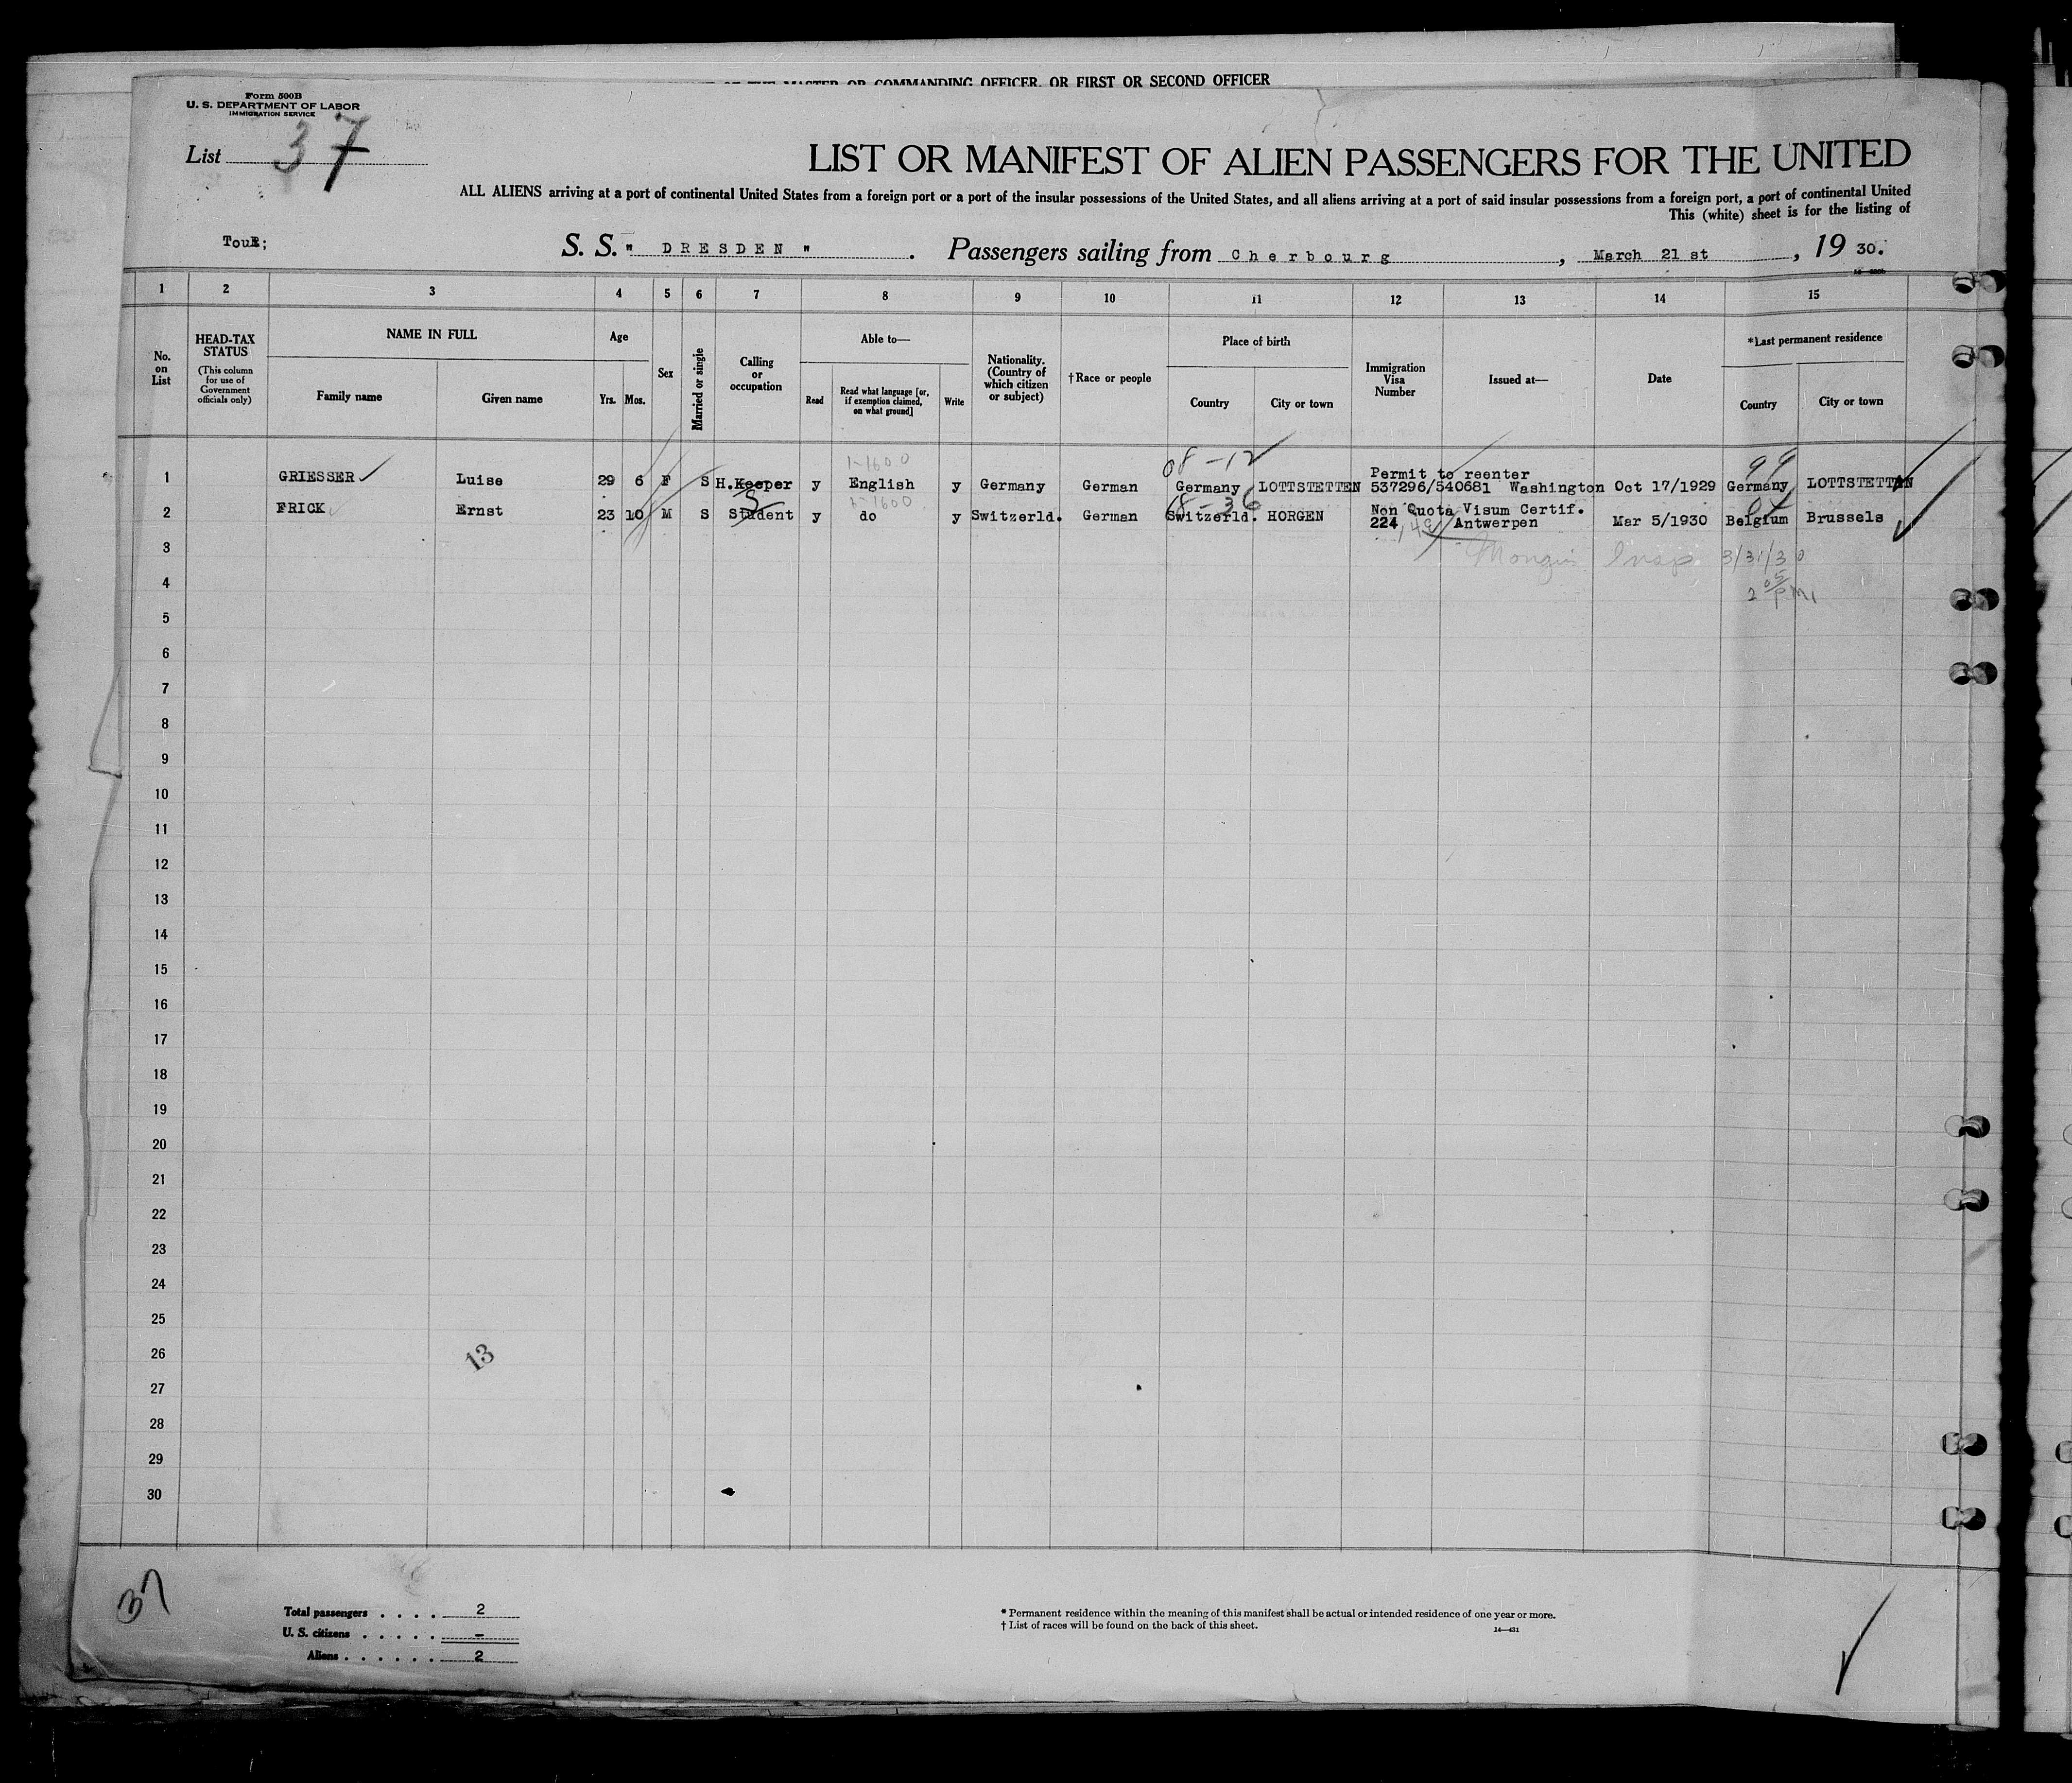 COMMANDING OFFICER, OR FIRST OR SECOND OFFICER
Form 500B
U. S. DEPARTMENT OF LABOR
IMMIGRATION SERVICE
List 37
LIST OR MANIFEST OF ALIEN PASSENGERS FOR THE UNITED
ALL ALIENS arriving at a port of continental United States from a foreign port or a port of the insular possessions of the United States, and all aliens arriving at a port of said insular possessions from a foreign port, a port of continental United
This (white) sheet is for the listing of
S. S. " DRESDEN " . Passengers sailing from Cherbourg , March 21 st , 19 30.
1 2 3 4 5 6 7 8 9 10 11 12 13 14 15
No. on List
HEAD-TAX STATUS
(This column for use of Government officials only)
NAME IN FULL
Family name Given name
Age
Yrs. Mos.
Sex
Married or single
Calling or occupation
Able to—
Read
Read what language [or, if exemption claimed, on what ground]
Write
Nationality. (Country of which citizen or subject)
†Race or people
Place of birth
Country City or town
Immigration Visa Number
Issued at—
Date
*Last permanent residence
Country City or town
1-1600 08-12 99
1 GRIESSER Luise 29 6 F S H.Keeper y English y Germany German Germany LOTTSTETTEN Permit to reenter 537296/540681 Washington Oct 17/1929 Germany LOTTSTETTEN
2 FRICK Ernst 23 10 M S Student y do y Switzerld. German Switzerld. HORGEN Non Quota Visum Certif. 224 Antwerpen Mar 5/1930 Belgium Brussels
3 Insp. 3/31/30
4 2 05 PM
5
6
7
8
9
10
11
12
13
14
15
16
17
18
19
20
21
22
23
24
25
26
13
27
28
29
30
37
Total passengers . . . . 2
U. S. citizens . . . . . –
Aliens . . . . . . 2
* Permanent residence within the meaning of this manifest shall be actual or intended residence of one year or more.
† List of races will be found on the back of this sheet.
14—431